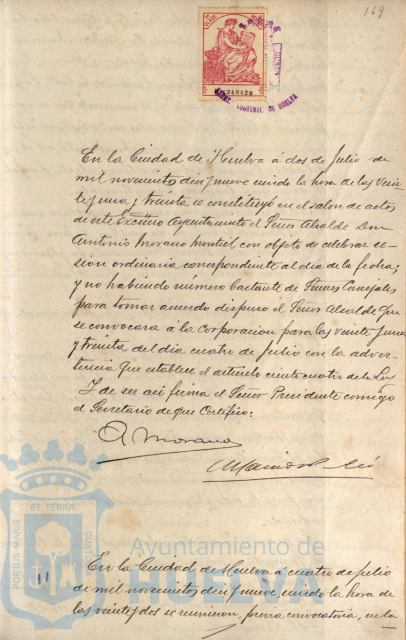 169
248428
DE HUELVA
En la Ciudad de Huelva á dos de Julio de
mil novecientos diez y nueve siendo la hora de las vein
te y una y treinta se constituyó en el salon de actos
de este Excmo Ayuntamiento el Señor Alcalde Don
Antonio Morano Montiel con objeto de celebrar se-
sion ordinaria correspondiente al dia de la fecha;
y no habiendo número bastante de Señores Concejales
para tomar acuerdo dispuso el Señor Alcalde que
se convocara á la Corporacion para las veinte y una
y treinta del dia cuatro de Julio con la adver-
tencia que establece el articulo ciento cuatro de la Ley
Y de ser asi firma el Señor Presidente conmigo
el Secretario de que Certifico:
A. Morano
PORTUS MARIS ET TERRAE CUSTODIA
Ayuntamiento de
HUELVA
En la Ciudad de Huelva á cuatro de Julio
de mil novecientos diez y nueve, siendo la hora de
las veinte y dos se reunieron, previa convocatoria, en la